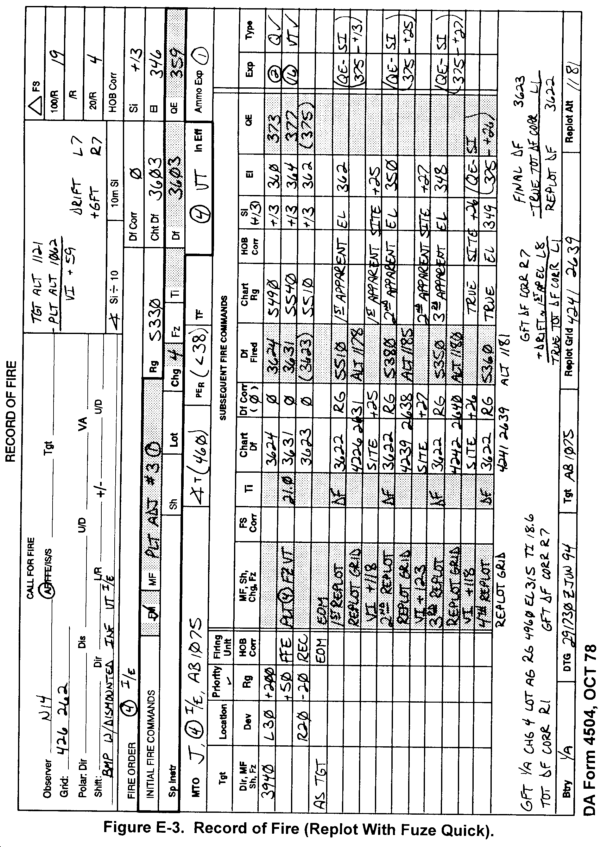 RECORD OF FIRE
CALL FOR FIRE
Observer N14 AF/FFE/IS/S Tgt
Grid: 426 262
Polar: Dir Dis U/D VA
Shift: Dir L/R +/- U/D
BMP W/DISMOUNTED INF VT I/E
TGT ALT 1121
- PLT ALT 1062
VI + 59
DRIFT L7
+GFT R7
Δ FS
100/R 19
/R
20/R 4
Si ÷ 10
10m Si
HOB Corr
FIRE ORDER ④ I/E
Df Corr Ø
Si +13
INITIAL FIRE COMMANDS FM MF PLT ADJ #3 ①
Rg 5330
Cht Df 3603
El 346
Sp Instr Sh Lot Chg 4 Fz Ti Df 3603 QE 359
MTO J, ④ I/E, AB1075
∡ T (460) PER (<38) TF ④ VT In Eff Ammo Exp ①
SUBSEQUENT FIRE COMMANDS
Tgt Location Priority Firing Unit
Dir, MF Sh, Fz Dev Rg HOB Corr MF, Sh, Chg, Fz FS Corr Ti Chart Df Df Corr (Ø) Df Fired Chart Rg HOB Corr Si (+13) El QE Exp Type
3940 L30 +200 3624 Ø 3624 5490 +13 360 373 ② Q✓
+50 FFE PLT ④ FZ VT 21.0 3631 Ø 3631 5540 +13 364 377 ⑯ VT✓
R20 -20 REC 3623 Ø (3623) 5510 +13 362 (375)
AS TGT EOM EOM
1ST REPLOT DF 3622 RG 5510 1ST APPARENT EL 362 (QE- SI)
REPLOT GRID 4226 2631 ALT 1178 (375 - +13)
VI +118 SITE +25 1ST APPARENT SITE +25
2ND REPLOT DF 3622 RG 5380 2ND APPARENT EL 350 (QE- SI)
REPLOT GRID 4239 2638 ALT 1185 (375 - +25)
VI +123 SITE +27 2ND APPARENT SITE +27
3RD REPLOT DF 3622 RG 5350 3RD APPARENT EL 348 (QE- SI)
REPLOT GRID 4242 2640 ALT 1180 (375 - +27)
VI +118 SITE +26 TRUE SITE +26 (QE-SI)
4TH REPLOT DF 3622 RG 5360 TRUE EL 349 (375 - +26)
REPLOT GRID 4241 2639 ALT 1181
GFT 1/A CHG 4 LOT AG RG 4960 EL 315 TI 18.6
TOT DF CORR R1 GFT DF CORR R7
GFT DF CORR R7
+DRIFT ~ 1ST APP EL L8
TRUE TOT DF CORR L1
FINAL DF 3623
-TRUE TOT DF CORR L1
REPLOT DF 3622
Btry 1/A DTG 291730 ZJUN 94 Tgt AB 1075 Replot Grid 4241 2639 Replot Alt 1181
DA Form 4504, OCT 78
Figure E-3. Record of Fire (Replot With Fuze Quick).